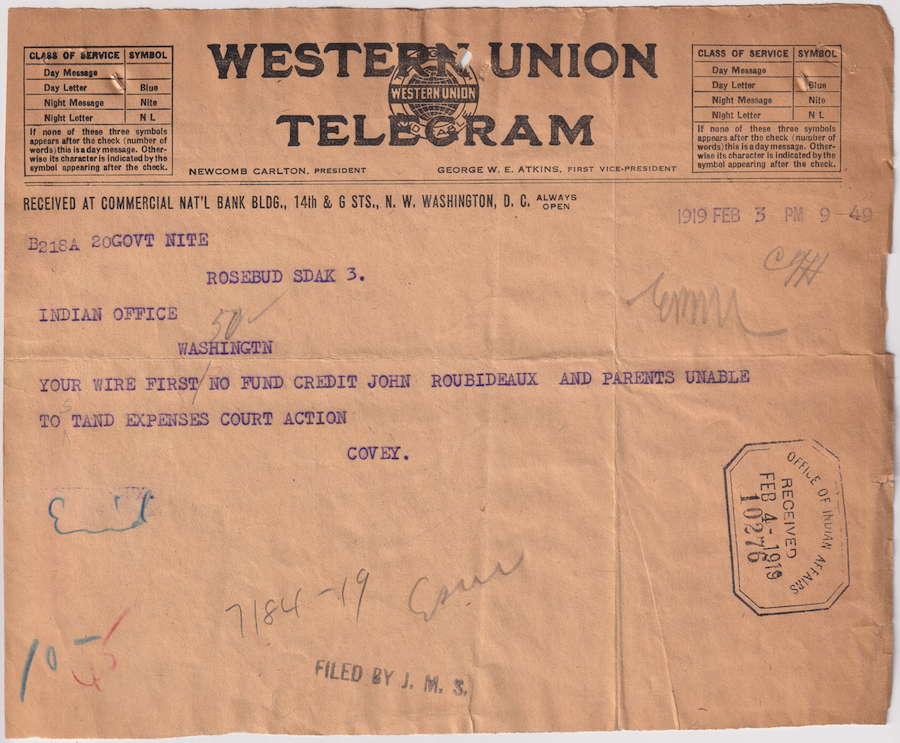 CLASS OF SERVICE SYMBOL
Day Message
Day Letter Blue
Night Message Nite
Night Letter N L
If none of these three symbols
appears after the check (number of
words) this is a day message. Other-
wise its character is indicated by the
symbol appearing after the check.
WESTERN UNION
WESTERN UNION
TELEGRAM
NEWCOMB CARLTON, PRESIDENT GEORGE W. E. ATKINS, FIRST VICE-PRESIDENT
CLASS OF SERVICE SYMBOL
Day Message
Day Letter Blue
Night Message Nite
Night Letter N L
If none of these three symbols
appears after the check (number of
words) this is a day message. Other-
wise its character is indicated by the
symbol appearing after the check.
RECEIVED AT COMMERCIAL NAT'L BANK BLDG., 14th & G STS., N. W. WASHINGTON, D. C. ALWAYS OPEN
1919 FEB 3 PM 9-49
B218A 20GOVT NITE
ROSEBUD SDAK 3.
INDIAN OFFICE
50
WASHINGTN
YOUR WIRE FIRST/ NO FUND CREDIT JOHN ROUBIDEAUX AND PARENTS UNABLE
TO TAND EXPENSES COURT ACTION
COVEY.
OFFICE OF INDIAN AFFAIRS
RECEIVED
FEB 4-1919
10276
7184-19
FILED BY J. M. S.